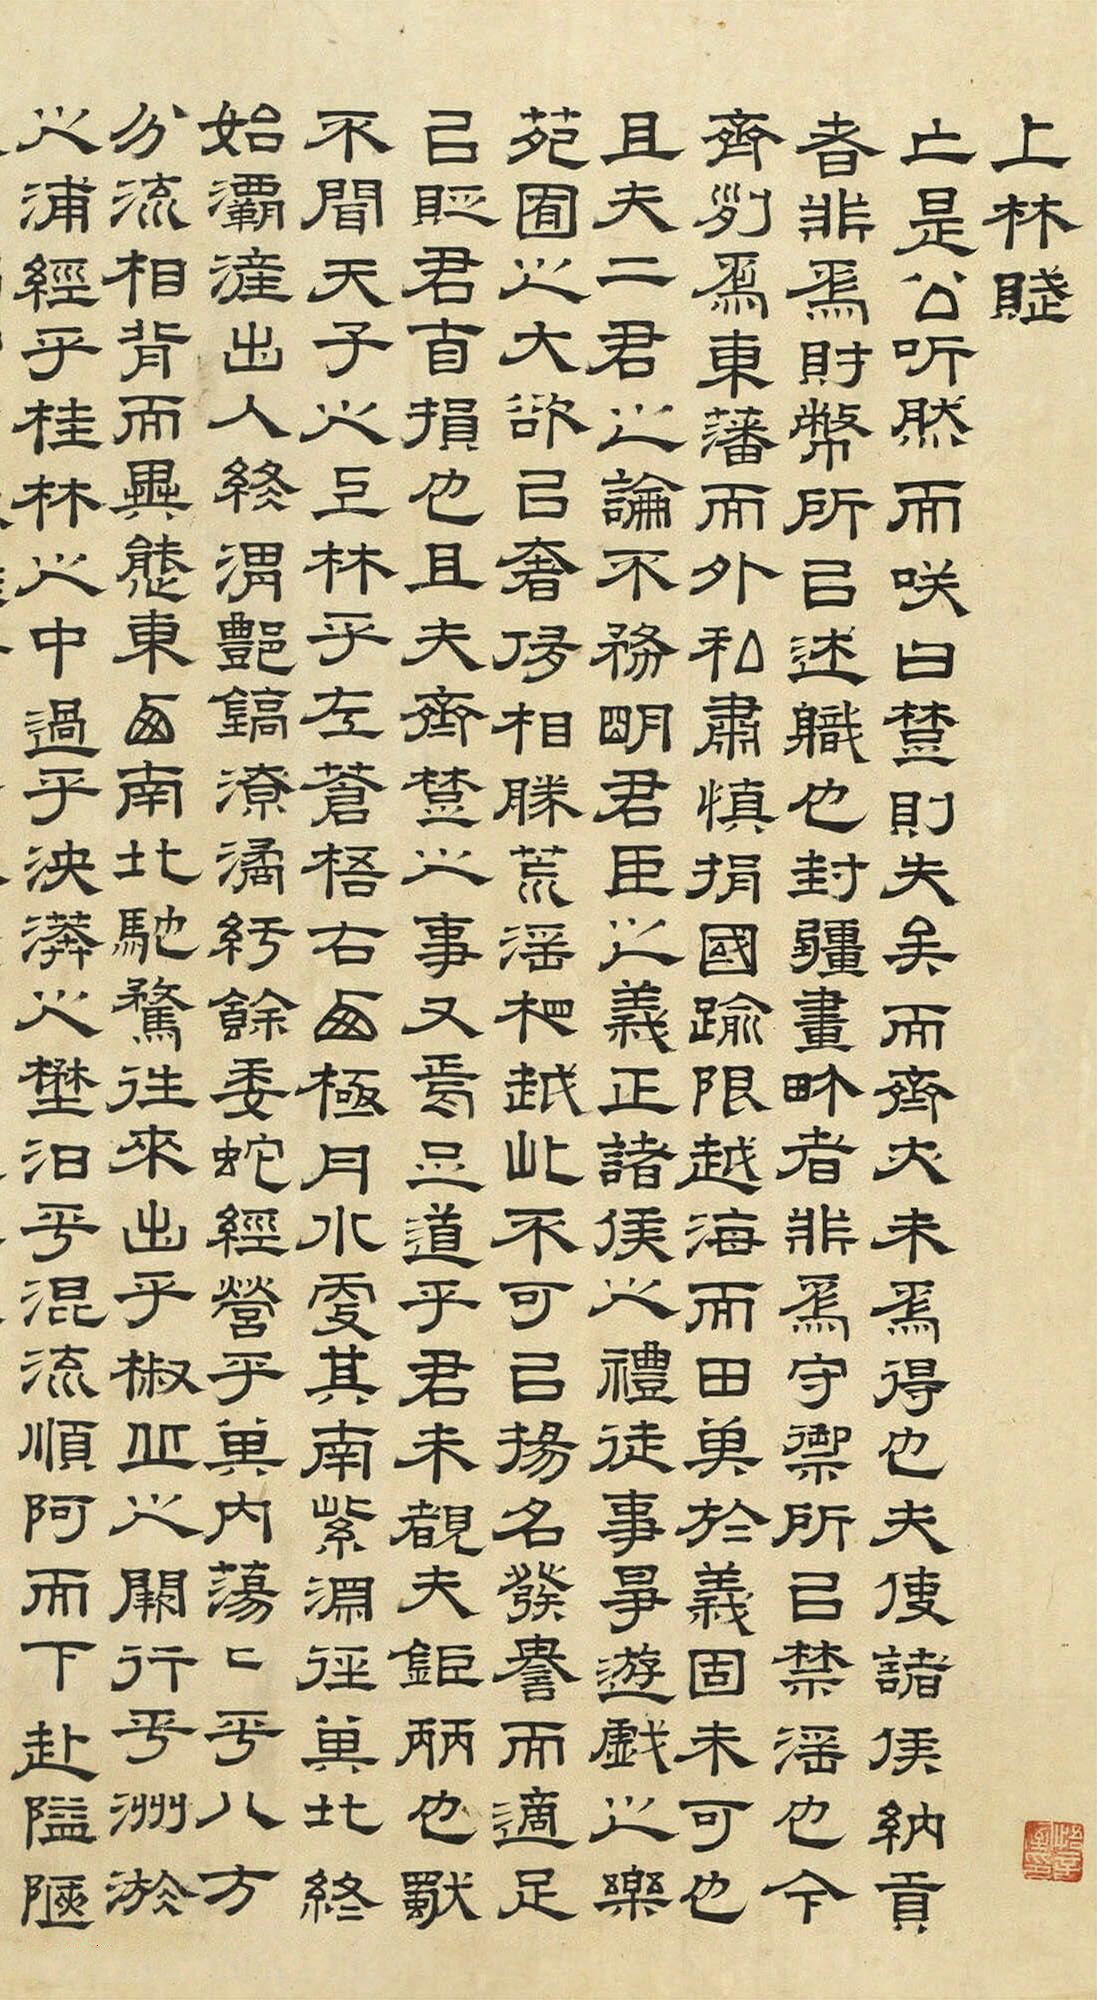 上林賦
亡是公听然而咲曰楚則失矣而齊亦未爲得也夫使諸侯納貢
者非爲財幣所㠯述職也封疆畫畍者非爲守禦所㠯禁淫也今
齊列爲東藩而外私肅慎捐國踰限越海而田其於義固未可也
且夫二君之論不務明君臣之義正諸侯之禮徒事爭遊戲之樂
苑囿之大欲㠯奢侈相勝荒淫相越此不可㠯揚名發譽而適足
㠯貶君自損也且夫齊楚之事又焉足道乎君未覩夫鉅麗也獨
不聞天子之上林乎左蒼梧右西極丹水更其南紫淵徑其北終
始灞滻出入終渭酆鎬潦潏紆餘委蛇經營乎其内蕩二乎八方
分流相背而異態東西南北馳騖往來出乎椒丘之闕行乎洲淤
之浦經乎桂林之中過乎泱漭之壄汨乎混流順阿而下赴隘陿